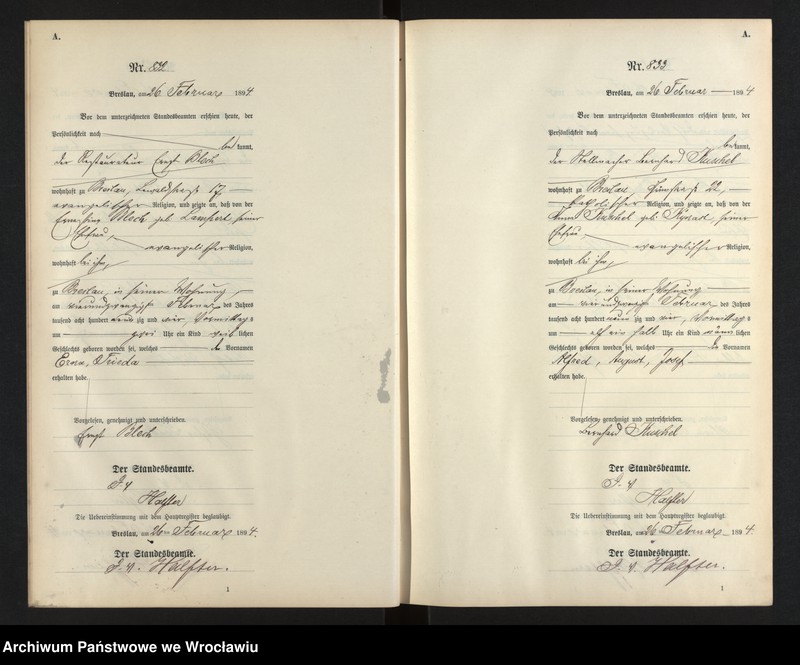 A.
Nr. 832
Breslau, am 26 Februar 1894
Vor dem unterzeichneten Standesbeamten erschien heute, der
Persönlichkeit nach
bekannt,
der Restaurateur Ernst Blech
wohnhaft zu Breslau, 17
evangelischer Religion, und zeigte an, daß von der
Blech geb. Lampert, seiner
Ehefrau,
evangelischer Religion,
wohnhaft bei ihm,
zu Breslau, in seiner Wohnung
am vierundzwanzigsten Februar des Jahres
tausend acht hundert neunzig und vier, Vormittags
um zwei Uhr ein Kind weiblichen
Geschlechts geboren worden sei, welches die Vornamen
Erna, Frieda
erhalten habe.
Vorgelesen, genehmigt und unterschrieben.
Ernst Blech
Der Standesbeamte.
I. V.
Halfter
Die Uebereinstimmung mit dem Hauptregister beglaubigt.
Breslau, am 26 Februar 1894.
Der Standesbeamte.
I. V. Halfter.
1
A.
Nr. 833
Breslau, am 26 Februar 1894
Vor dem unterzeichneten Standesbeamten erschien heute, der
Persönlichkeit nach
bekannt,
der Stellmacher Bernhard Kuschel
wohnhaft zu Breslau, 22,
katholischer Religion, und zeigte an, daß von der
Anna Kuschel geb. seiner
Ehefrau
evangelischer Religion,
wohnhaft bei ihm,
zu Breslau, in seiner Wohnung
am vierundzwanzigsten Februar des Jahres
tausend acht hundert neunzig und vier, Vormittags
um elf ein halb Uhr ein Kind männlichen
Geschlechts geboren worden sei, welches die Vornamen
Alfred, August, Josef
erhalten habe.
Vorgelesen, genehmigt und unterschrieben.
Bernhard Kuschel
Der Standesbeamte.
I. V.
Halfter
Die Uebereinstimmung mit dem Hauptregister beglaubigt.
Breslau, am 26 Februar 1894.
Der Standesbeamte.
I. V. Halfter.
1
Archiwum Państwowe we Wrocławiu